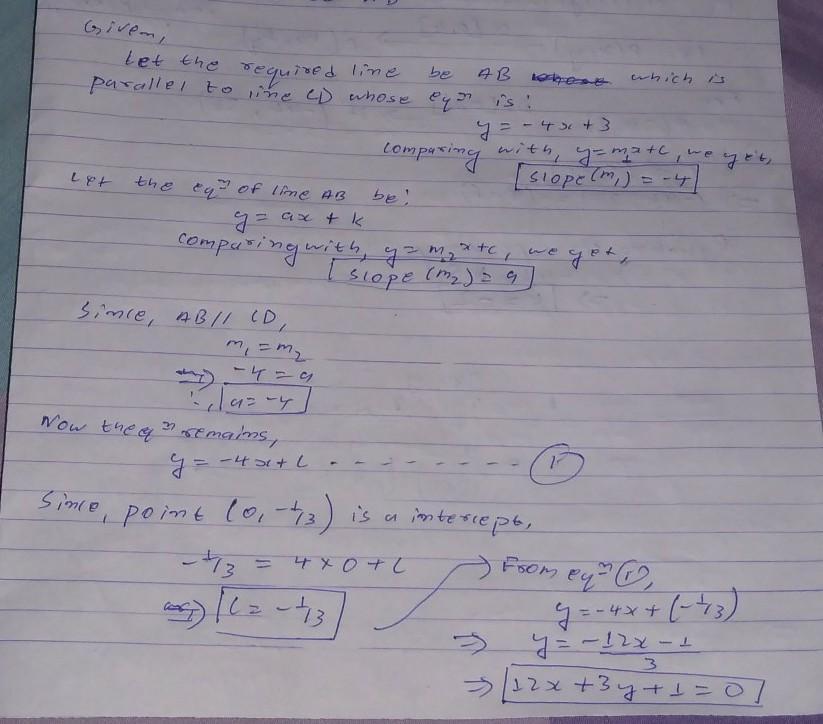 Given,
Let the required line be AB which is
parallel to line CD whose eqⁿ is:
y = -4x + 3
comparing with, y = m₁x + c, we get,
slope (m₁) = -4
Let the eqⁿ of line AB be:
y = ax + k
comparing with, y = m₂x + c, we get,
slope (m₂) = a
Since, AB // CD,
m₁ = m₂
-4 = a
∴, a = -4
Now the eqⁿ remains,
y = -4x + c - - - - - - - - (1)
Since, point (0, -1/3) is a intercept,
-1/3 = 4 × 0 + c
c = -1/3
From eqⁿ (1),
y = -4x + (-1/3)
⇒ y = (-12x - 1)/3
⇒ 12x + 3y + 1 = 0